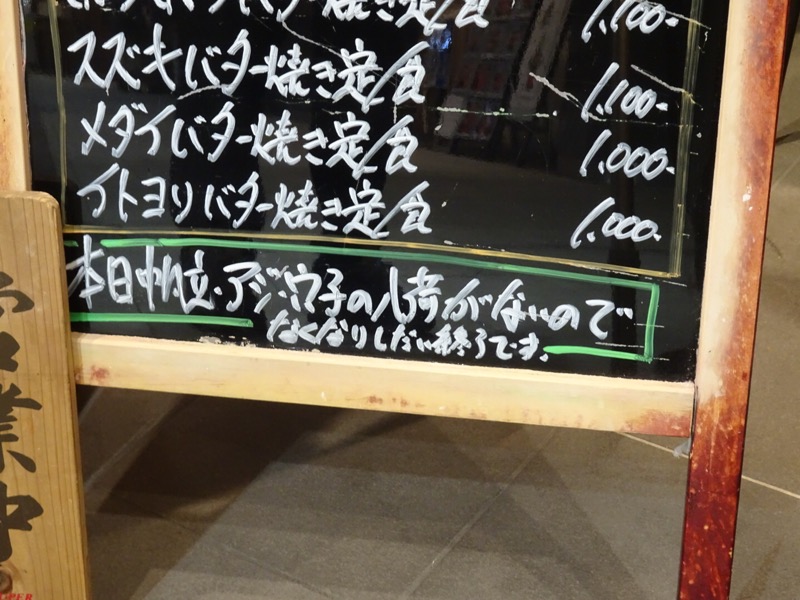 バター焼き定食 1,100-
スズキバター焼き定食 1,100-
メダイバター焼き定食 1,000-
イトヨリバター焼き定食 1,000-
本日帆立・アジ・ウ子の入荷がないので
なくなりしだい終了です。
営業中